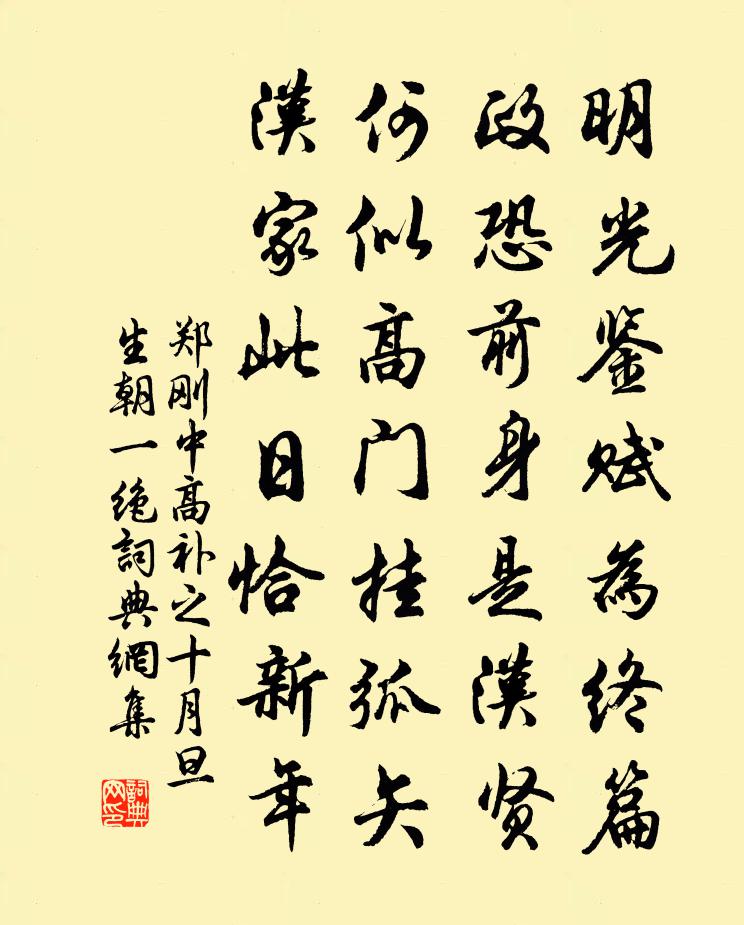 明光鉴赋为终篇
政恐前身是漢贤
何似高门挂弧矢
漢家此日恰新年
郑刚中高补之十月旦
生朝一绝詞典網集
詞典网印